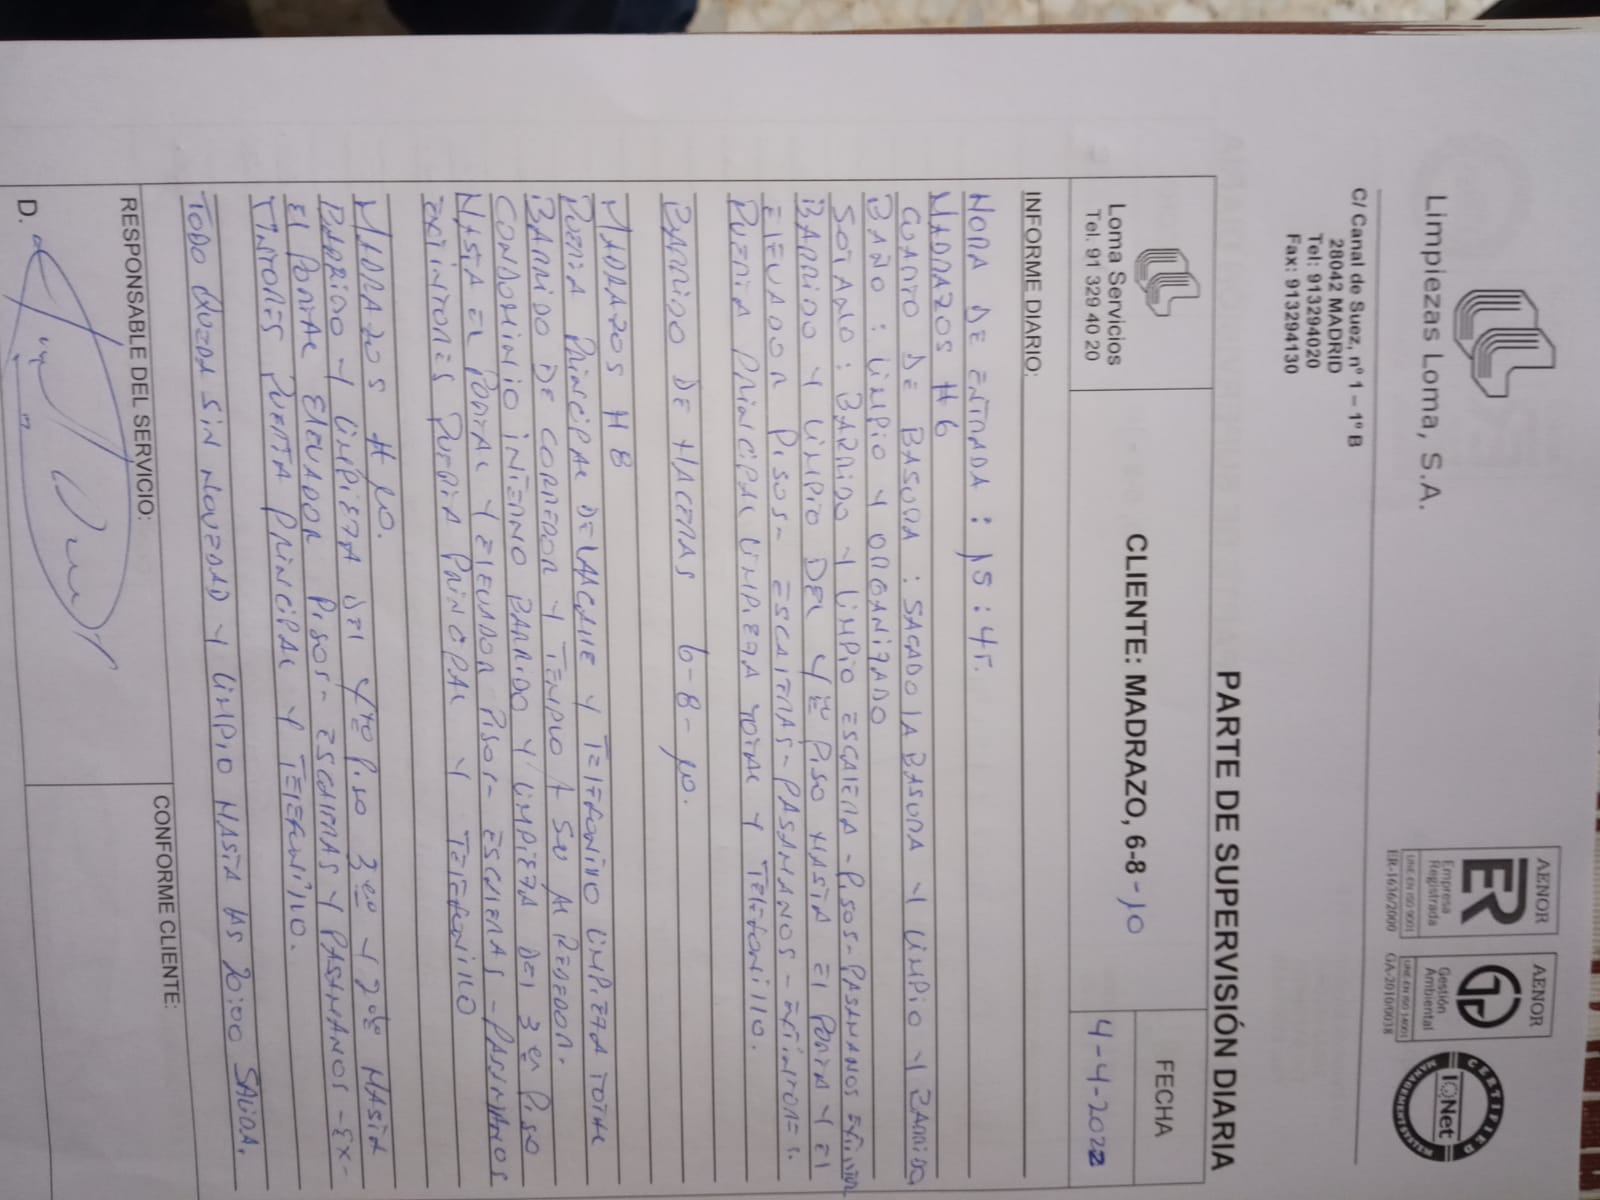 Limpiezas Loma, S.A.
C/ Canal de Suez, nº 1 – 1º B
28042 MADRID
Tel: 913294020
Fax: 913294130
AENOR
ER
Empresa
Registrada
UNE-EN ISO 9001
ER-1636/2000
AENOR
Gestión
Ambiental
UNE-EN ISO 14001
GA-2010/0038
CERTIFIED
IQNet
MANAGEMENT SYSTEM
PARTE DE SUPERVISIÓN DIARIA
Loma Servicios
Tel. 91 329 40 20
CLIENTE: MADRAZO, 6-8-10
FECHA
4-4-2022
INFORME DIARIO:
HORA DE ENTRADA : 15:45.
MADRAZOS # 6
CUARTO DE BASURA : SACADO LA BASURA Y LIMPIO Y BARRIDO,
BAÑO : LIMPIO Y ORGANIZADO
SOTANO : BARRIDO Y LIMPIO ESCALERA - PISOS - PASAMANOS
BARRIDO Y LIMPIO DEL 4TO PISO HASTA EL PORTAL Y EL
ELEVADOR PISOS - ESCALERAS - PASAMANOS - EXTINTORES.
PUERTA PRINCIPAL LIMPIEZA TOTAL Y TELEFONILLO.
BARRIDO DE HACERAS 6-8-10.
MADRAZOS # 8
PUERTA PRINCIPAL DE LA CALLE Y TELEFONILLO LIMPIEZA TOTAL
BARRIDO DE CORREDOR Y TEMPLO A SU ALREDEDOR.
CONDOMINIO INTERNO BARRIDO Y LIMPIEZA DEL 3ER PISO
HASTA EL PORTAL Y ELEVADOR PISOS - ESCALERAS - PASAMANOS
EXTINTORES PUERTA PRINCIPAL Y TELEFONILLO
MADRAZOS # 10.
BARRIDO Y LIMPIEZA DEL 4TO PISO 3ERO Y 2DO HASTA
EL PORTAL ELEVADOR PISOS - ESCALERAS Y PASAMANOS - EX-
TINTORES PUERTA PRINCIPAL Y TELEFONILLO.
TODO QUEDA SIN NOVEDAD Y LIMPIO HASTA LAS 20:00 SALIDA.
RESPONSABLE DEL SERVICIO:
CONFORME CLIENTE:
D.